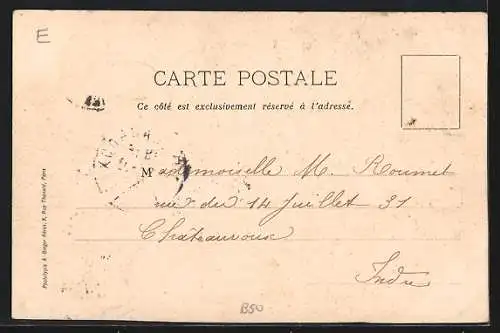 E
CARTE POSTALE
Ce côté est exclusivement réservé à l'adresse.
Mademoiselle M. Roumet
rue du 14 Juillet 31
Châteauroux
Indre
B50